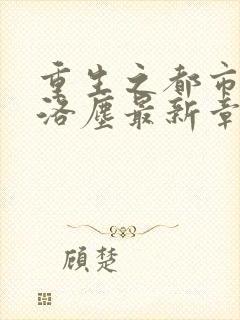 重生之都市
洛尘最新章
顾楚